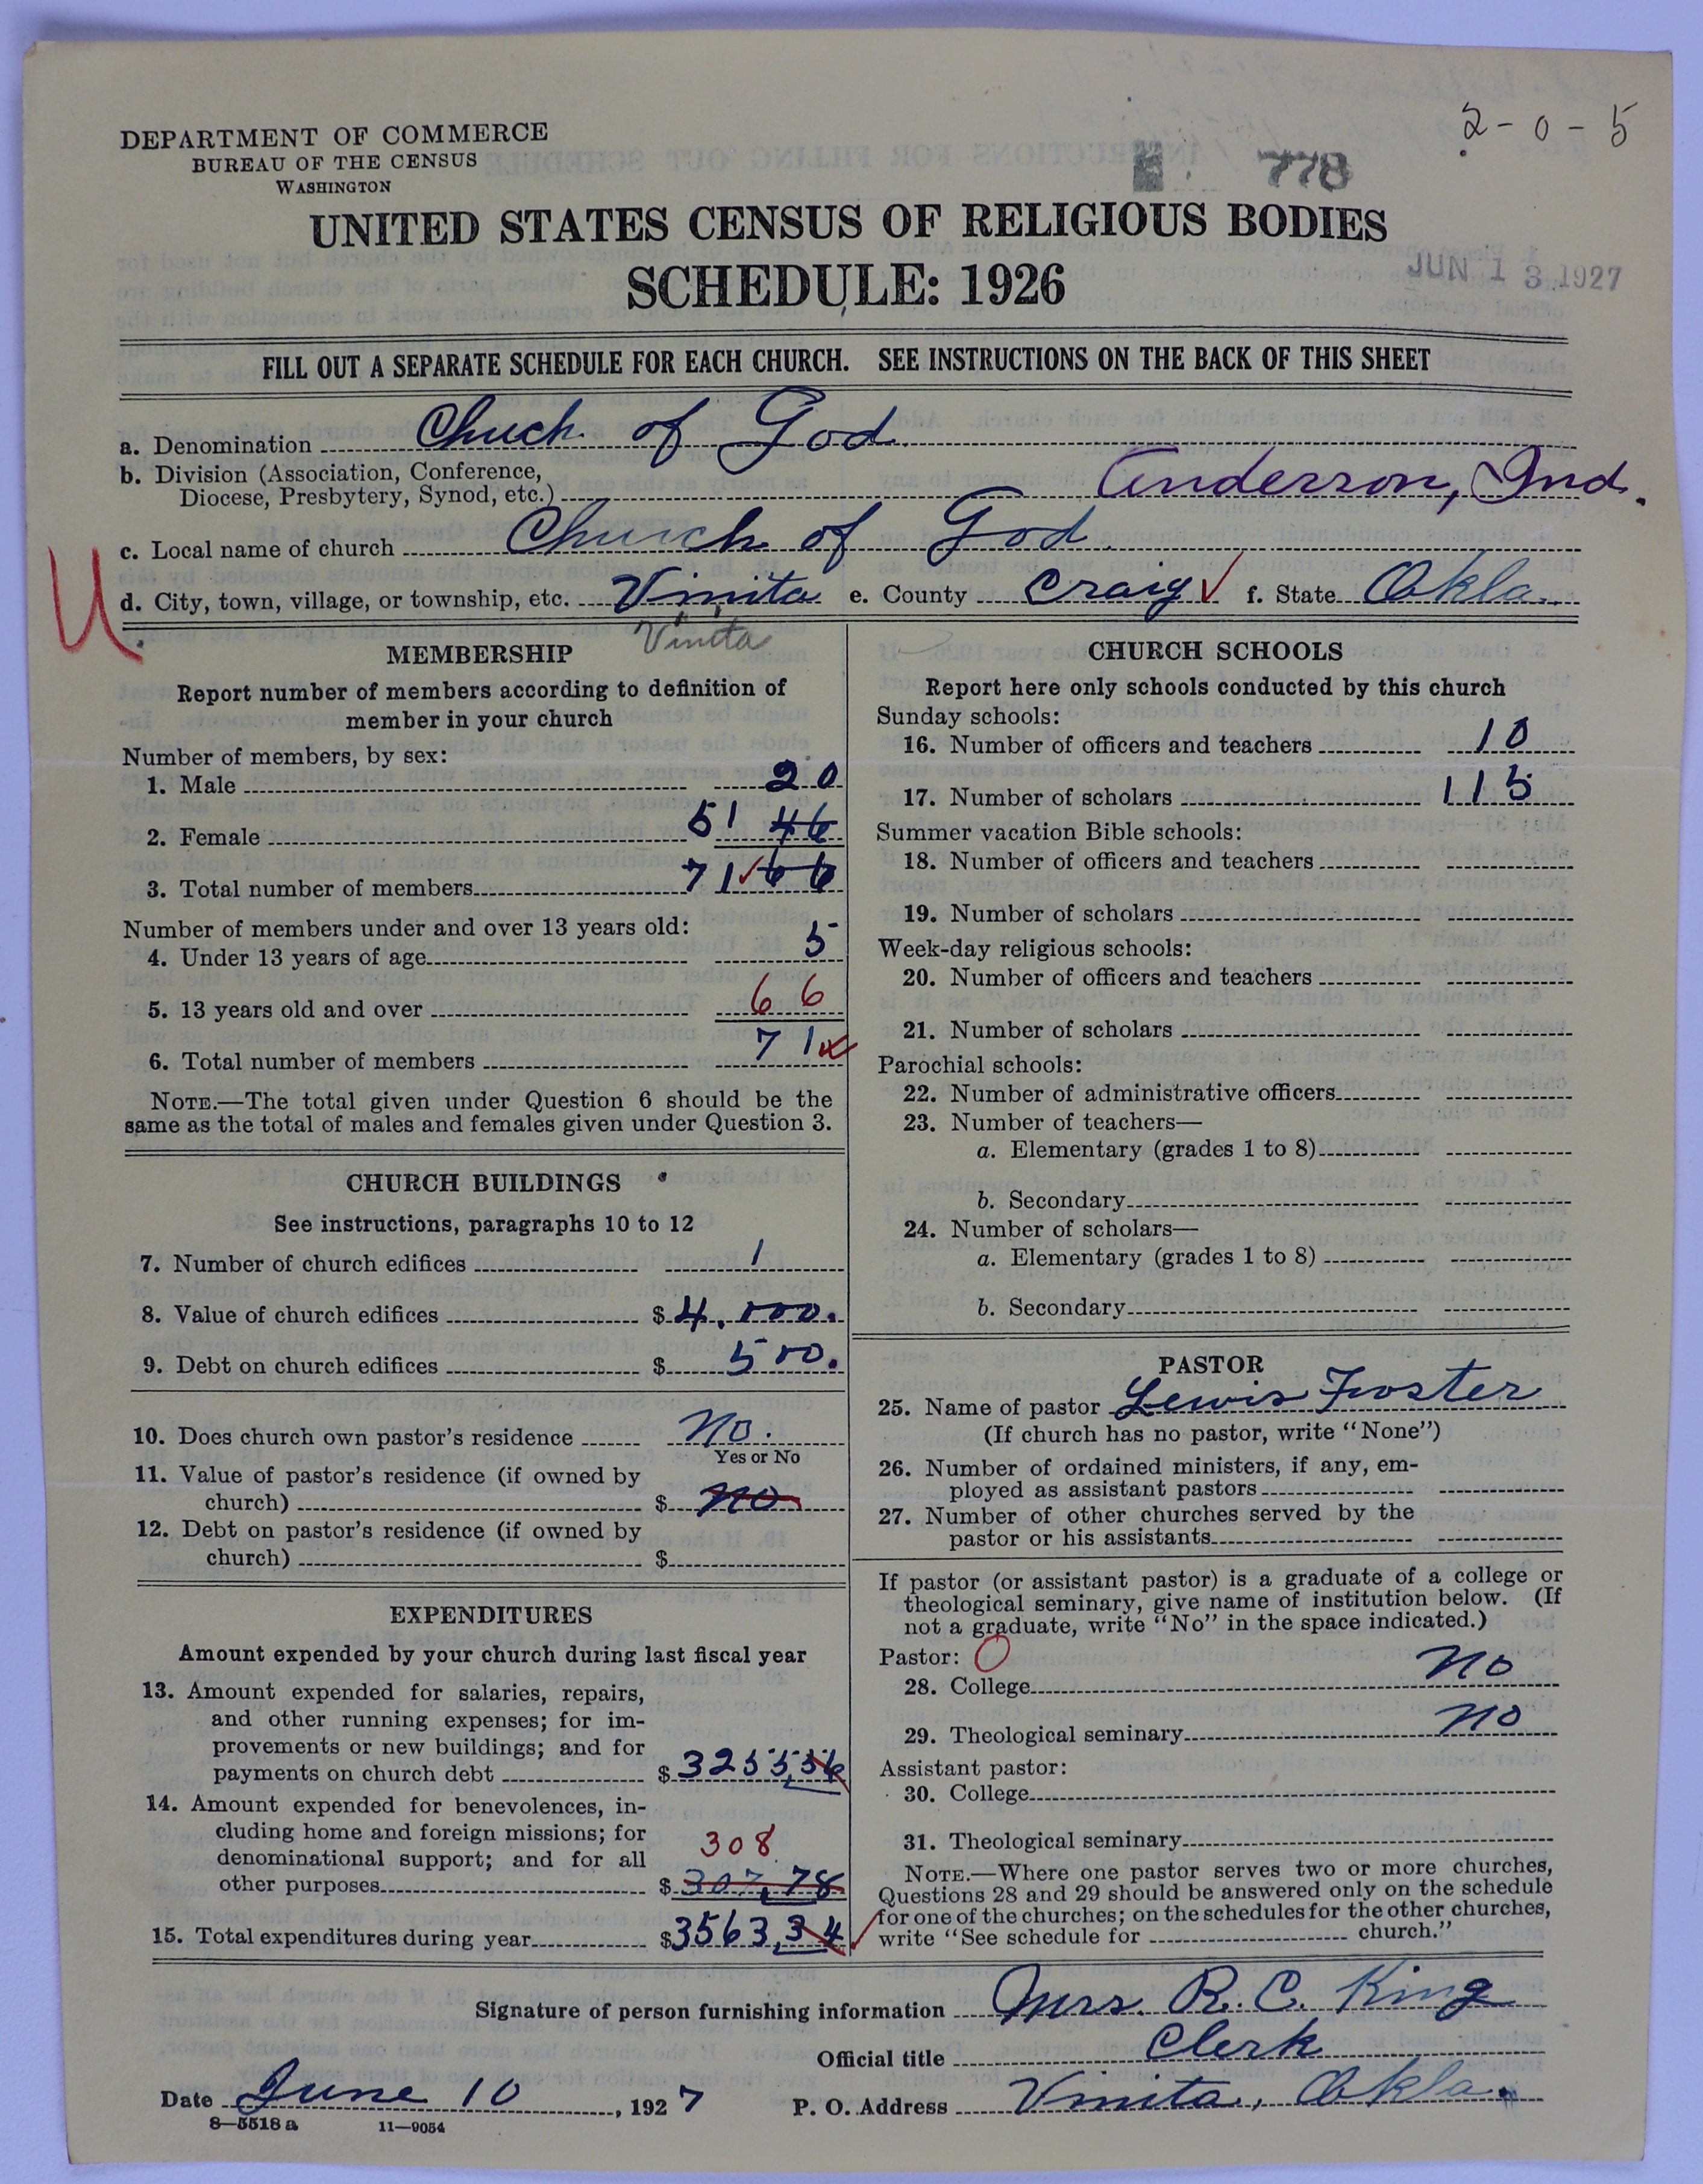 2-0-5
DEPARTMENT OF COMMERCE
BUREAU OF THE CENSUS
WASHINGTON
778
UNITED STATES CENSUS OF RELIGIOUS BODIES
SCHEDULE: 1926
JUN 13 1927
FILL OUT A SEPARATE SCHEDULE FOR EACH CHURCH. SEE INSTRUCTIONS ON THE BACK OF THIS SHEET
a. Denomination Chuch of God
b. Division (Association, Conference,
Diocese, Presbytery, Synod, etc.) Anderson, Ind.
c. Local name of church Church of God.
U
d. City, town, village, or township, etc. Vinita e. County Craig ✓ f. State Okla.
Vinita
MEMBERSHIP
Report number of members according to definition of
member in your church
Number of members, by sex:
1. Male 20
2. Female 51 46
3. Total number of members 71 ✓ 66
Number of members under and over 13 years old:
4. Under 13 years of age 5
5. 13 years old and over 66
6. Total number of members 71
NOTE.—The total given under Question 6 should be the
same as the total of males and females given under Question 3.
CHURCH BUILDINGS
See instructions, paragraphs 10 to 12
7. Number of church edifices 1
8. Value of church edifices $ 4,000.
9. Debt on church edifices $ 500.
10. Does church own pastor's residence No.
Yes or No
11. Value of pastor's residence (if owned by
church) $ no
12. Debt on pastor's residence (if owned by
church) $
EXPENDITURES
Amount expended by your church during last fiscal year
13. Amount expended for salaries, repairs,
and other running expenses; for im-
provements or new buildings; and for
payments on church debt $ 3255,56
14. Amount expended for benevolences, in-
cluding home and foreign missions; for
308
denominational support; and for all
other purposes $ 307,78
15. Total expenditures during year $3563,34 ✓
CHURCH SCHOOLS
Report here only schools conducted by this church
Sunday schools:
16. Number of officers and teachers 10
17. Number of scholars 115
Summer vacation Bible schools:
18. Number of officers and teachers
19. Number of scholars
Week-day religious schools:
20. Number of officers and teachers
21. Number of scholars
Parochial schools:
22. Number of administrative officers
23. Number of teachers—
a. Elementary (grades 1 to 8)
b. Secondary
24. Number of scholars—
a. Elementary (grades 1 to 8)
b. Secondary
PASTOR
25. Name of pastor Lewis Froster
(If church has no pastor, write "None")
26. Number of ordained ministers, if any, em-
ployed as assistant pastors
27. Number of other churches served by the
pastor or his assistants
If pastor (or assistant pastor) is a graduate of a college or
theological seminary, give name of institution below. (If
not a graduate, write "No" in the space indicated.)
Pastor: O
28. College no
29. Theological seminary no
Assistant pastor:
30. College
31. Theological seminary
NOTE.—Where one pastor serves two or more churches,
Questions 28 and 29 should be answered only on the schedule
for one of the churches; on the schedules for the other churches,
write "See schedule for church."
Signature of person furnishing information Mrs. R. C. King
Official title Clerk
Date June 10, 1927 P. O. Address Vinita, Okla.
8—5518 a 11—9054